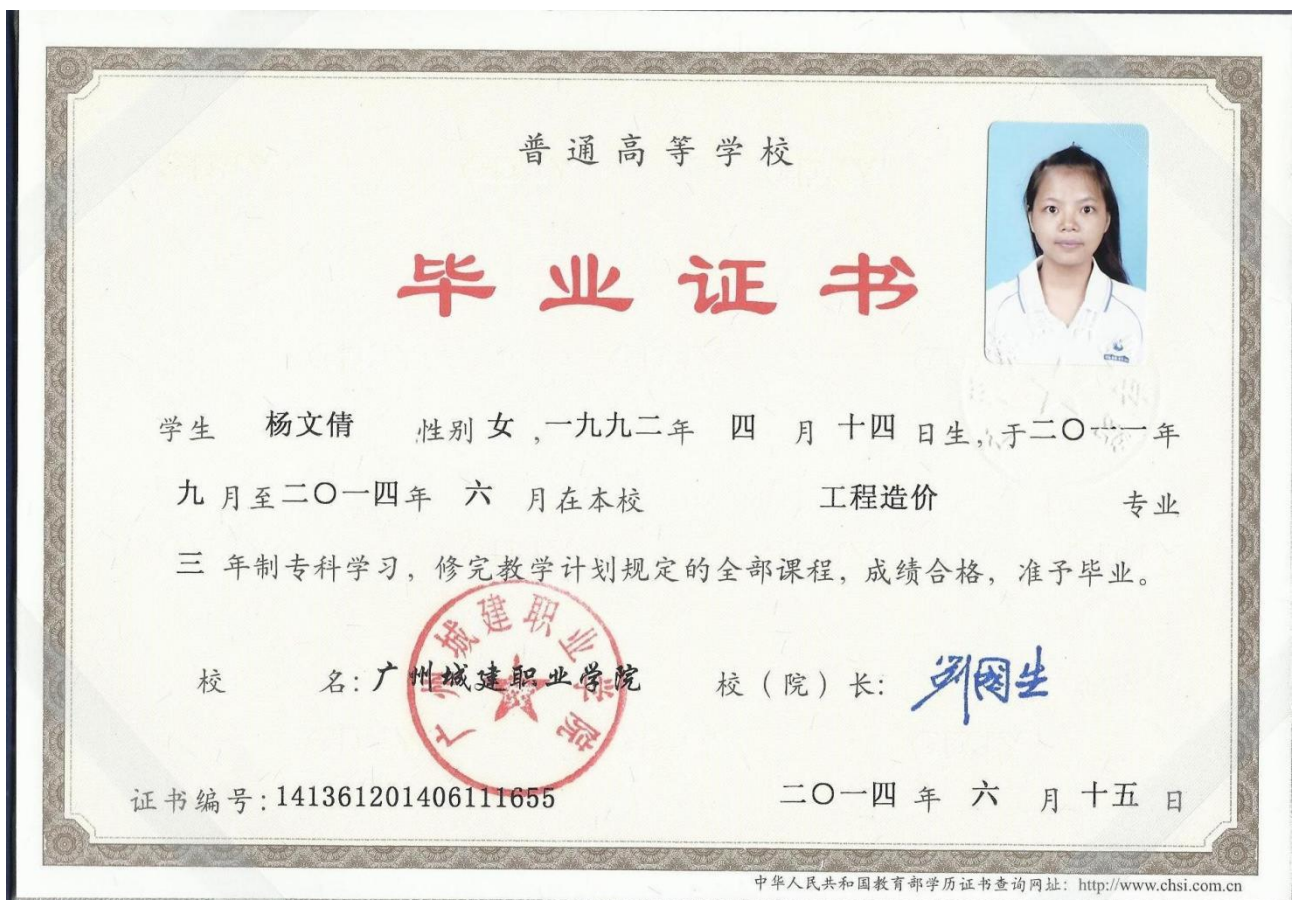 普通高等学校
毕业证书
学生 杨文倩 性别 女 ,一九九二年 四 月 十四 日生,于二〇一一年
九 月至二〇一四年 六 月在本校 工程造价 专业
三 年制专科学习, 修完教学计划规定的全部课程, 成绩合格, 准予毕业。
广州城建职业学院
校 名: 广州城建职业学院 校(院)长: 刘国生
证书编号: 141361201406111655 二〇一四 年 六 月 十五 日
中华人民共和国教育部学历证书查询网址: http://www.chsi.com.cn